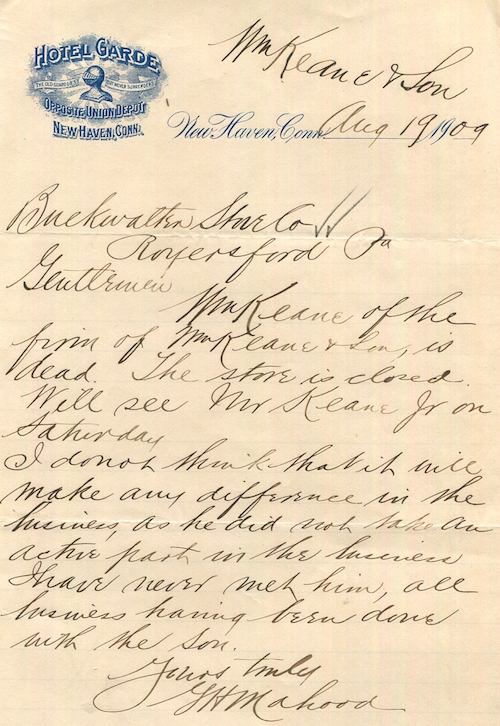 Wm Keane & Son
HOTEL GARDE
THE OLD GUARD DIES BUT NEVER SURRENDERS
OPPOSITE UNION DEPOT
NEW HAVEN, CONN.
New Haven, Conn. Aug 19 1909
Buckwalter Stove Co
Royersford Pa
Gentlemen
Wm Keane of the
firm of Wm Keane & Son, is
dead. The store is closed.
Will see Mr Keane Jr on
Saturday
I do not think that it will
make any difference in the
business, as he did not take an
active part in the business
I have never met him, all
business having been done
with the son.
Yours truly
GH Mahood